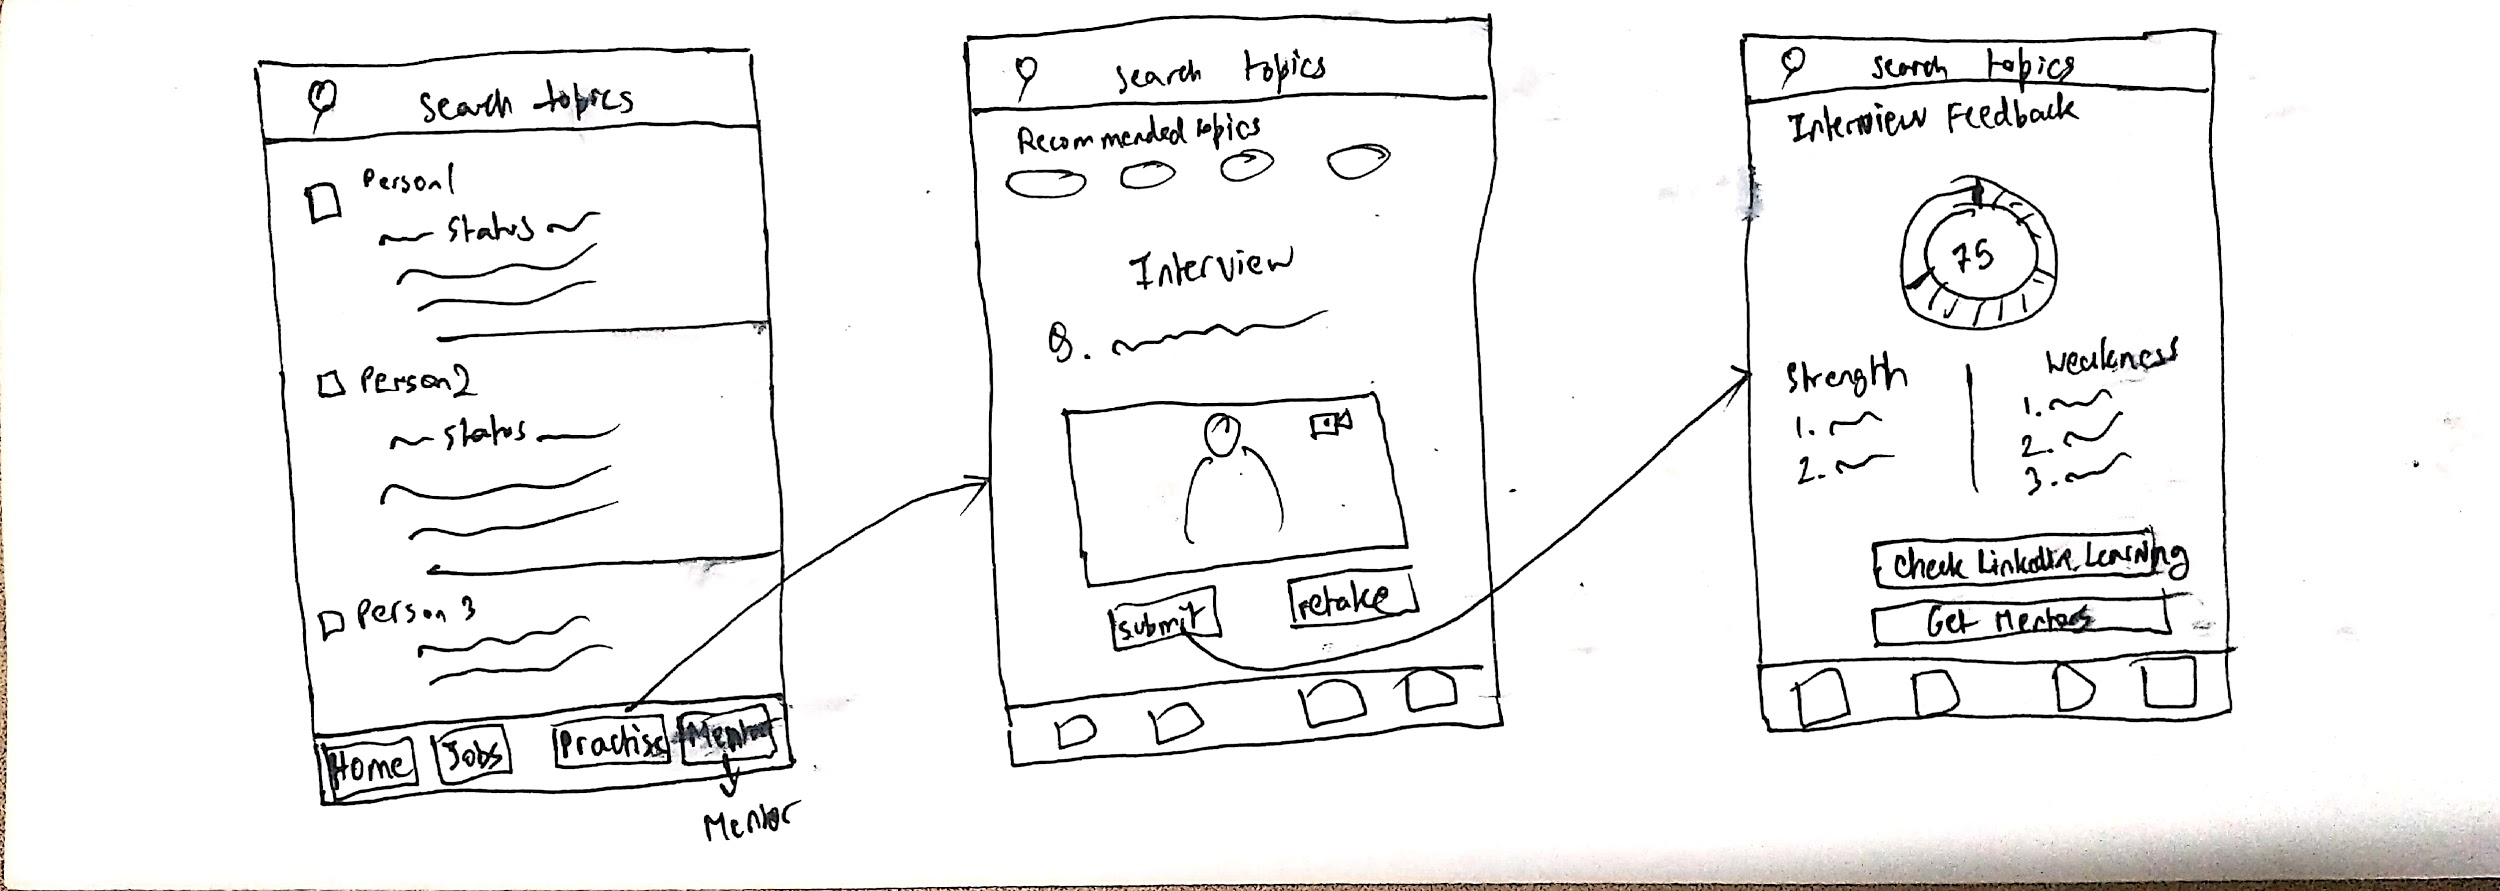 Search topics
Person1
Status
Person2
Status
Person 3
Home
Jobs
Practise
Mentor
Mentor
Search topics
Recommended topics
Interview
Q.
submit
retake
Search topics
Interview Feedback
75
Strength
1.
2.
Weakness
1.
2.
3.
Check LinkedIn Learning
Get Mentors